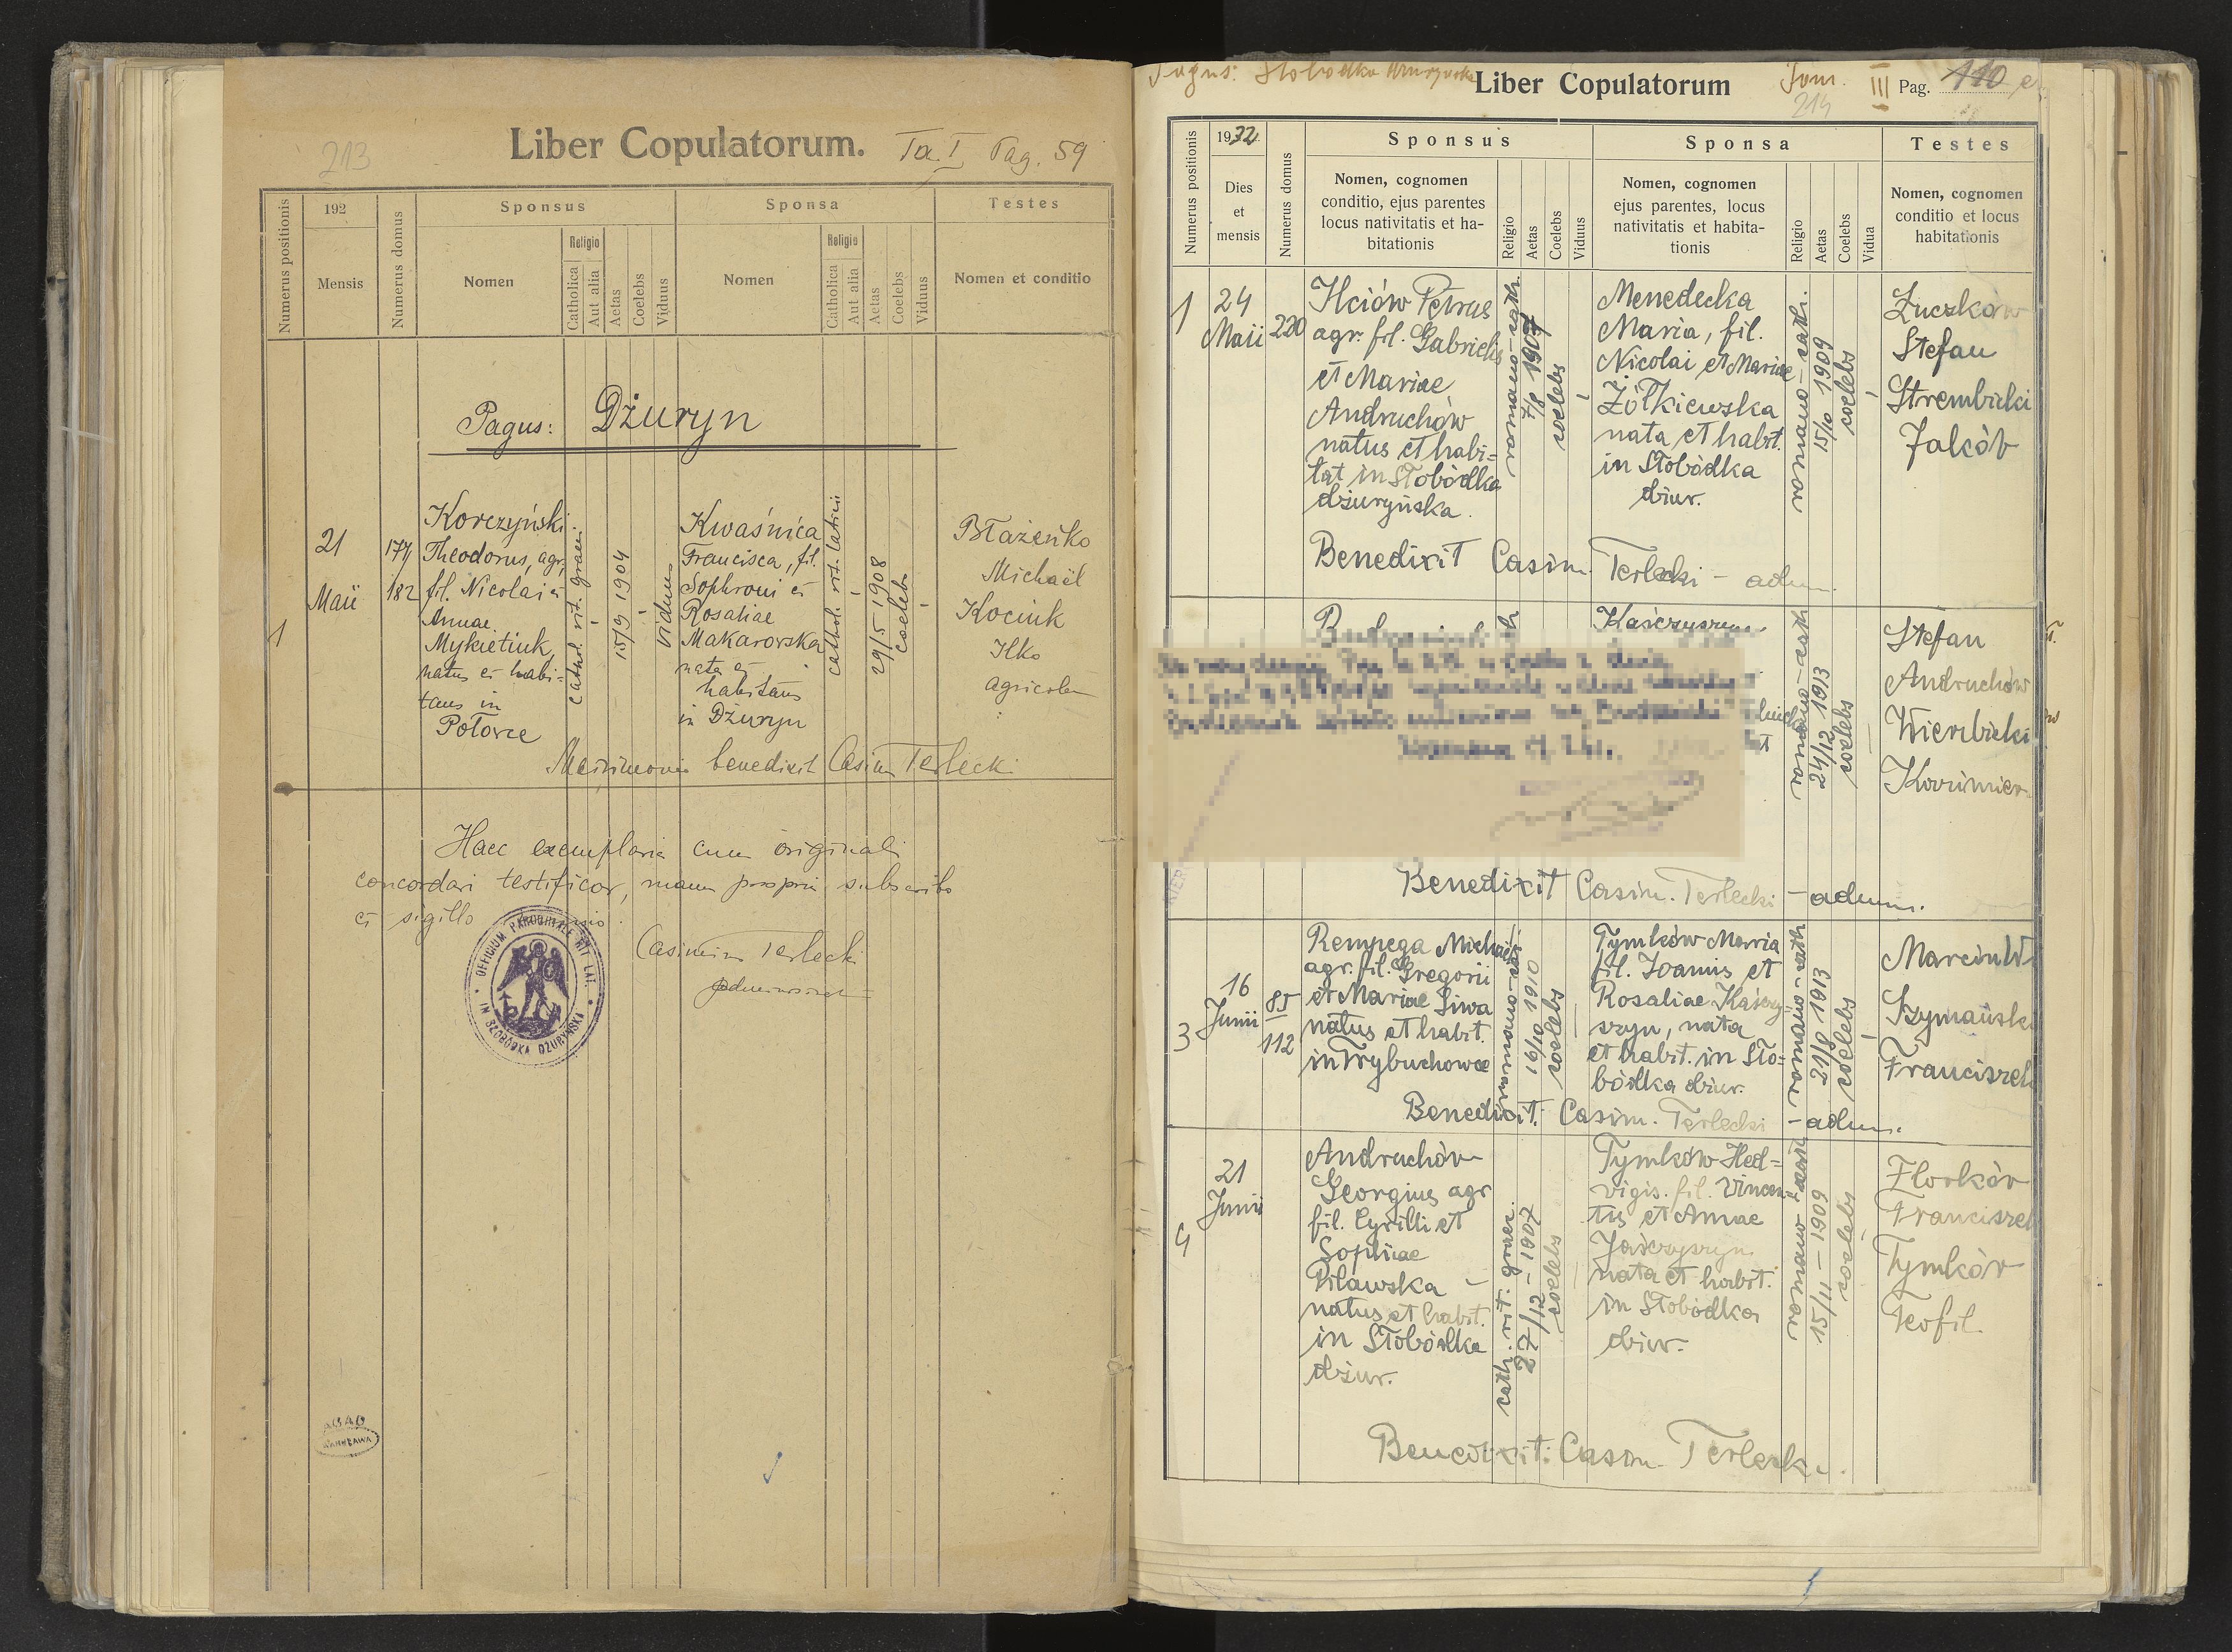 213
Liber Copulatorum. Pag. 59
Numerus positionis
192
Mensis
Numerus domus
Sponsus
Nomen
Religio
Catholica
Aut alia
Aetas
Coelebs
Viduus
Sponsa
Nomen
Religio
Catholica
Aut alia
Aetas
Coelebs
Viduus
Testes
Nomen et conditio
Pagus: Dżuryn
1
21
Maii
182
Korczyński
Theodorus, agr.
fil. Nicolai et
Annae
Mykietiuk,
natus et habi=
tans in
Połowce
cathol. rit. graeci
15/3 1904
viduus
Kwaśnica
Francisca, fil.
Sophroni et
Rosaliae
Makarowska
nata et
habitans
in Dżuryn
cathol. rit. latini
29/5 1908
coelebs
Błażeńko
Michaël
Kociuk
Ilko
agricolae
benedixit Casim Terlecki
Haec exemplaria cum originali
concordari testificor, manu propria subscribo
et sigillo
Casimir Terlecki
OFFICIUM PAROCHIALE RIT. LAT.
IN SŁOBÓDKA DŻURYŃSKA
AGAD
WARSZAWA
Pagus: Słobódka dżuryńska
Liber Copulatorum
Tom. III Pag. 110
214
Numerus positionis
1932
Dies
et
mensis
Numerus domus
Sponsus
Nomen, cognomen
conditio, ejus parentes
locus nativitatis et ha-
bitationis
Religio
Aetas
Coelebs
Viduus
Sponsa
Nomen, cognomen
ejus parentes, locus
nativitatis et habita-
tionis
Religio
Aetas
Coelebs
Vidua
Testes
Nomen, cognomen
conditio et locus
habitationis
1
24
Maii
220
Ilciów Petrus
agr. fil. Gabrielis
et Mariae
Andruchów
natus et habi=
tat in Słobódka
dżuryńska.
romano-cath.
7/8 1907
coelebs
Menedecka
Maria, fil.
Nicolai et Mariae
Żółkiewska
nata et habit.
in Słobódka
dżur.
romano-cath.
15/10 1909
coelebs
Łuczków
Stefan
Strembicki
Jakób
Benedixit Casim. Terlecki - adm.
romano-cath
24/12 1913
coelebs
Stefan
Andruchów
Wierzbicki
Kazimierz
Benedixit Casim. Terlecki - adm.
3
16
Junii
85
112
Rempega Michaël
agr. fil. Gregorii
et Mariae Siwa
natus et habit.
in Trybuchowce
romano-cath.
16/10 1910
coelebs
Tymków Maria
fil. Joannis et
Rosaliae Jaśczy=
szyn, nata
et habit. in Sło=
bódka dżur.
romano-cath
21/8 1913
coelebs
Marcin W
Szymański
Franciszek
Benedixit. Casim. Terlecki - adm.
4
21
Junii
Andruchów
Georgius agr
fil. Cyrilli et
Sophiae
Pilawska
natus et habit.
in Słobódka
dżur.
cath. rit. graeci.
27/12 - 1907
coelebs
Tymków Hed=
vigis. fil. Vincen=
tis et Annae
Jaśczyszyn
nata et habit.
in Słobódka
dżur.
romano cath
15/11 - 1909
coelebs
Florków
Franciszek
Tymków
Teofil
Benedixit: Casim. Terlecki.